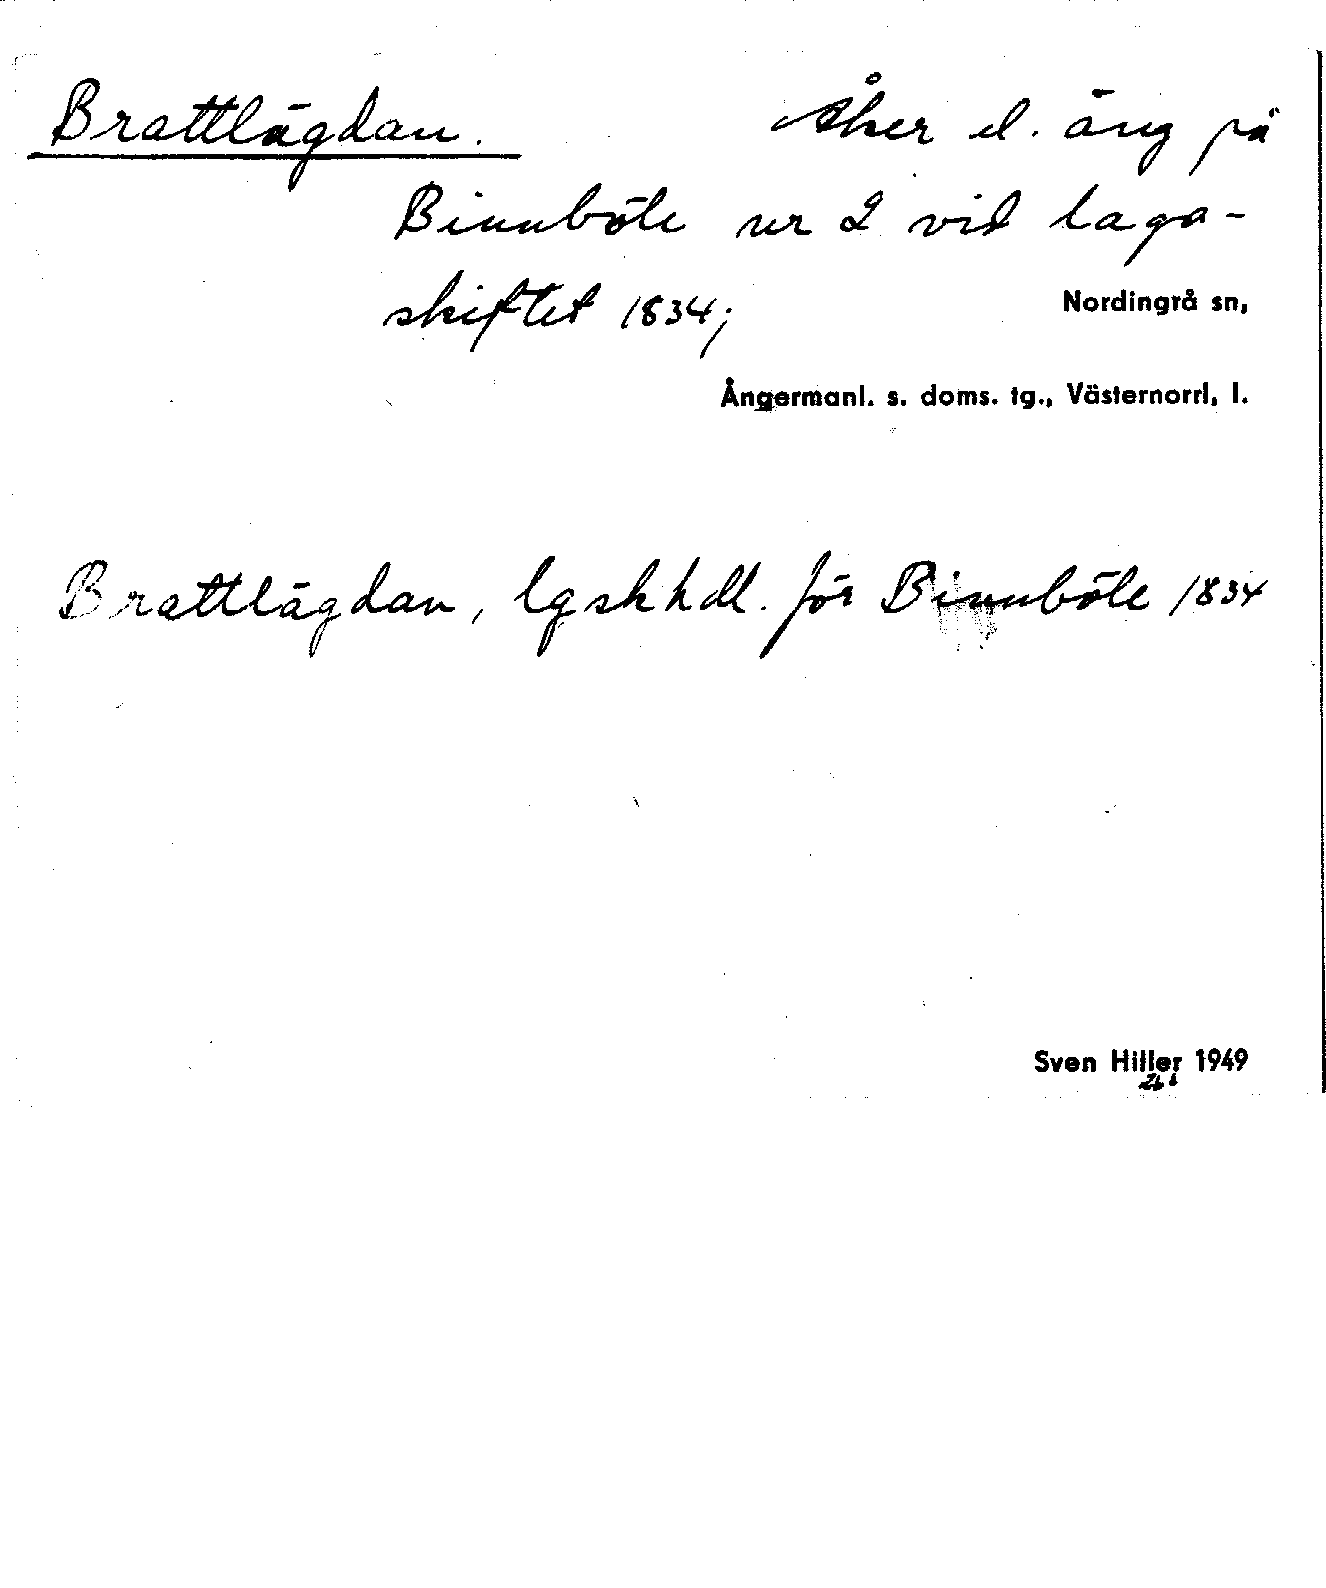 Brattlägdan. Åker el. äng på
Binnböle nr 2 vid laga-
skiftet 1834;
Nordingrå sn,
Ångermanl. s. doms. tg., Västernorrl. l.
Brattlägdan, lgskhdl. för Binnböle 1834
Sven Hiller 1949